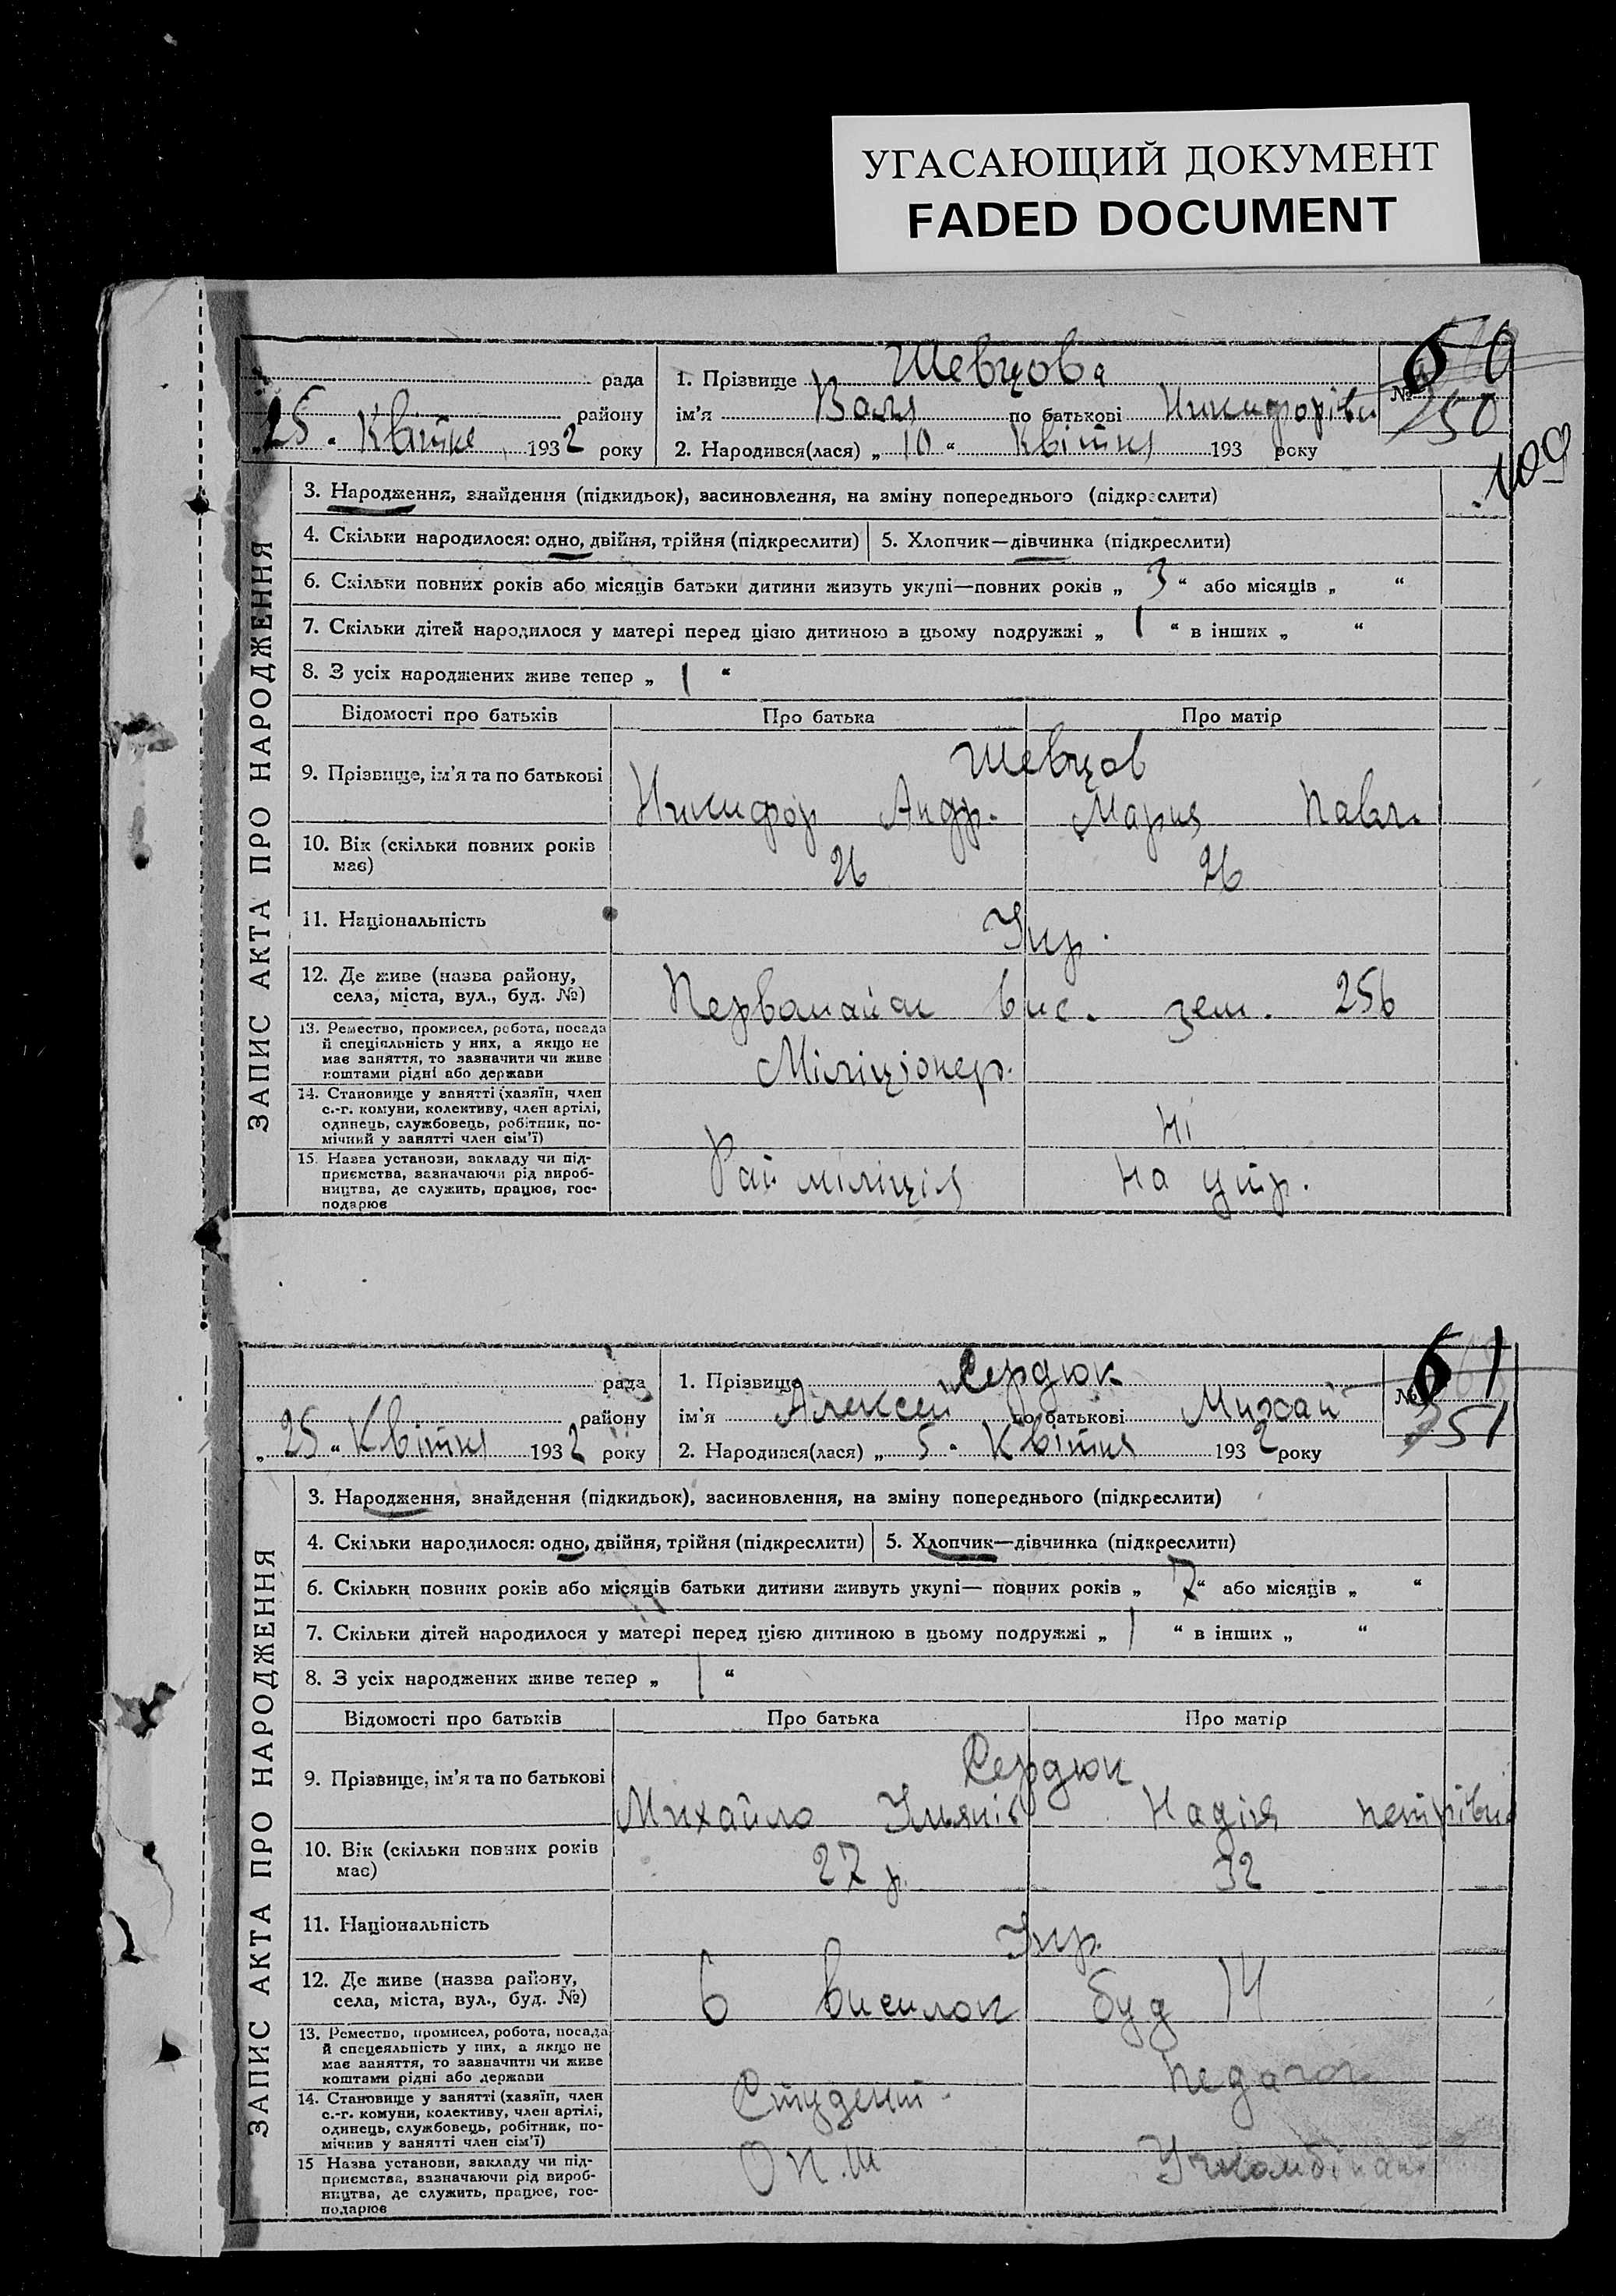 УГАСАЮЩИЙ ДОКУМЕНТ
FADED DOCUMENT
ЗАПИС АКТА ПРО НАРОДЖЕННЯ
рада
району
„25" Квітня 1932 року
1. Прізвище Шевцова
ім'я Валя по батькові Никифорівн
2. Народився(лася) „10" Квітня 193 року
№ 250
60
109
3. Народження, знайдення (підкидьок), васиновлення, на зміну попереднього (підкреслити)
4. Скільки народилося: одно, двійня, трійня (підкреслити)
5. Хлопчик—дівчинка (підкреслити)
6. Скільки повних років або місяців батьки дитини живуть укупі—повних років „3" або місяців „ "
7. Скільки дітей народилося у матері перед цією дитиною в цьому подружжі „1" в інших „ "
8. З усіх народжених живе тепер „1"
Відомості про батьків Про батька Про матір
9. Прізвище, ім'я та по батькові
Шевцов
Никифор Андр. Мария Павл.
10. Вік (скільки повних років
має)
26 26
11. Національність Укр.
12. Де живе (назва району,
села, міста, вул., буд. №)
Первомайск вис. зем. 256
13. Ремество, промисел, робота, посада
й спеціяльність у них, а якщо не
має заняття, то зазначити чи живе
коштами рідні або держави
Міліціонер.
14. Становище у занятті (хазяїн, член
с.-г. комуни, колективу, член артілі,
одинець, службовець, робітник, по-
мічний у занятті член сім'ї)
Ні
15. Назва установи, закладу чи під-
приємства, вазначаючи рід вироб-
ництва, де служить, працює, гос-
подарює
Рай міліція на утр.
ЗАПИС АКТА ПРО НАРОДЖЕННЯ
рада
району
„25" Квітня 1932 року
1. Прізвище Сердюк
ім'я Алексей по батькові Михай
2. Народився(лася) „5" Квітня 1932 року
№ 251
61
3. Народження, знайдення (підкидьок), васиновлення, на зміну попереднього (підкреслити)
4. Скільки народилося: одно, двійня, трійня (підкреслити)
5. Хлопчик—дівчинка (підкреслити)
6. Скільки повних років або місяців батьки дитини живуть укупі— повних років „7" або місяців „ "
7. Скільки дітей народилося у матері перед цією дитиною в цьому подружжі „1" в інших „ "
8. З усіх народжених живе тепер „1"
Відомості про батьків Про батька Про матір
9. Прізвище, ім'я та по батькові
Сердюк
Михайло Надія Петрівна
10. Вік (скільки повних років
має)
27 р. 32
11. Національність Укр.
12. Де живе (назва району,
села, міста, вул., буд. №)
6 висилок буд 14
13. Ремество, промисел, робота, посада
й спецеяльність у них, а якщо не
має заняття, то зазначити чи живе
коштами рідні або держави
Педагог
14. Становище у занятті (хазяїн, член
с.-г. комуни, колективу, член артілі,
одинець, службовець, робітник, по-
мічнив у занятті член сім'ї)
Студент.
15 Назва установи, закладу чи під-
приємства, вазначаючи рід вироб-
ництва, де служить, працює, гос-
подарює
Учкомбінат